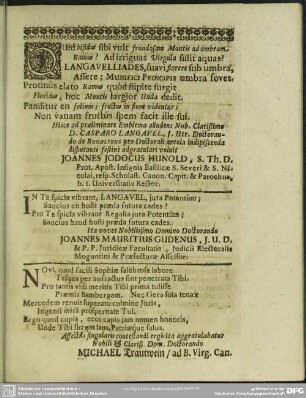 QUid bisidui sibi vult frondosam Montis ad umbram
Ramus? Ad irriguas Virgula sistit aquas?
LANGAVELLIADES, suavi florere sub umbra,
Assere; MUNIFICI PRINCIPIS umbra fovet.
Protinus elato Ramus quod stipite surgit
Floridus, hoc Montis largior Unda dedit.
Panditur en folium; fructus in flore videntur;
Non vanam fructus spem facit ille sui.
Hisce ad præliminare Emblema aludens Nob. Clarissimo
D. CASPARO LANGAVEL, J. Utr. Doctorando
de pro Doctorali aureola indispensenda
disputanti festine adgratulari voluit
JOANNES JODOCUS HUNOLD, S. Th. D.
Prot. Apost. Insignis Basilicæ S. Severi & S. Nicolai,
resp. Scholast. Canon. Capit. & Parochus,
h. t. Universitatis Rector.
IN Te spicla vibrant, LANGAVEL, jura Potentum;
Saucius en hosti præda futura cades!
Pro Te spicla vibrant Regalia jura Potentum;
Saucius haud hosti præda futura cades.
Ita vovet Nobilissimo Domino Doctorando
JOANNES MAURITIUS GUDENUS, J. U. D.
& P. P. Juridicæ Facultatis, Judicii Electoralis
Moguntini & Præfecturæ Assessor.
NOvi, quod facili Sophiæ salebrosa labore
Tesqua per anfractus sint penetrata Tibi.
Pro tantis vidi meritis Tibi prima tulisse
Præmia Bambergam. Nec sera sola tenax
Mercedem renuit superato culmine Juris,
Ingenii mirâ prosperitate Tui.
Ergo quod cupis, ecce capis jam nomen honoris,
Unde Tibi surgat laus, Patriæque salus.
Affectus singularis contestandi ergò ita aggratulabatur
Nobili & Clariss. Dom. Doctorando
MICHAEL Trautwein / ad B. Virg. Can.